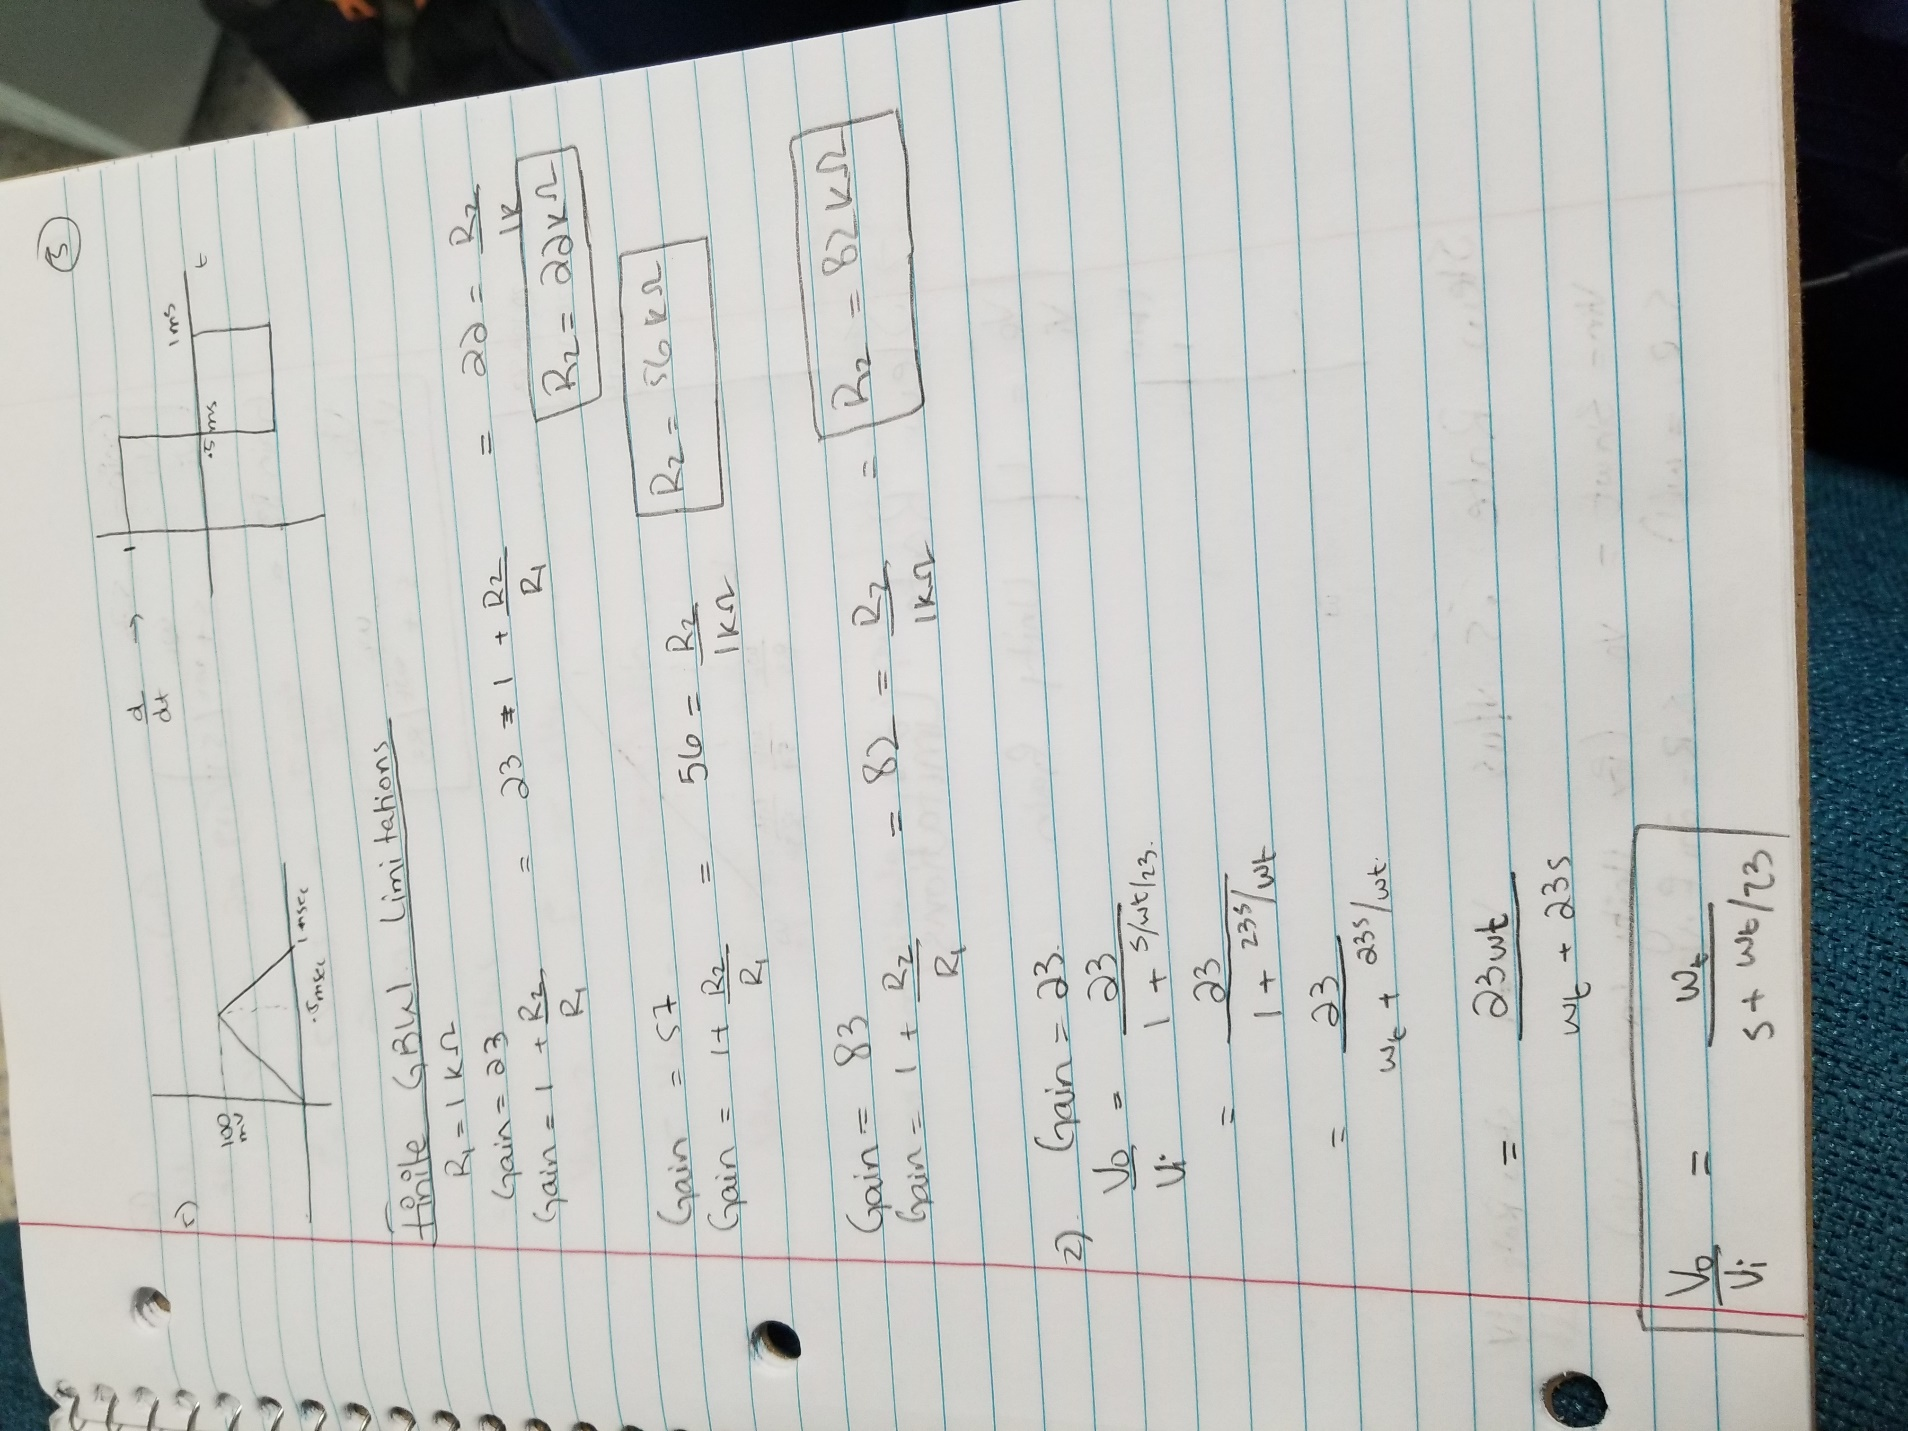 (3)
c)
100 mv
.5msec
1 msec
d/dt →
1
.5ms
1ms
t
Finite GBW Limitations
R₁ = 1KΩ
Gain = 23
Gain = 1 + R₂/R₁ = 23 = 1 + R₂/R₁ = 22 = R₂/1K
R₂ = 22KΩ
Gain = 57
Gain = 1 + R₂/R₁ = 56 = R₂/1KΩ R₂ = 56KΩ
Gain = 83
Gain = 1 + R₂/R₁ = 82 = R₂/1KΩ = R₂ = 82KΩ
2). Gain = 23.
Vo/Vi = 23/(1 + s/wt/23.)
= 23/(1 + 23s/wt)
= 23/(wt + 23s/wt.)
= 23wt/(wt + 23s)
Vo/Vi = wt/(s + wt/23)